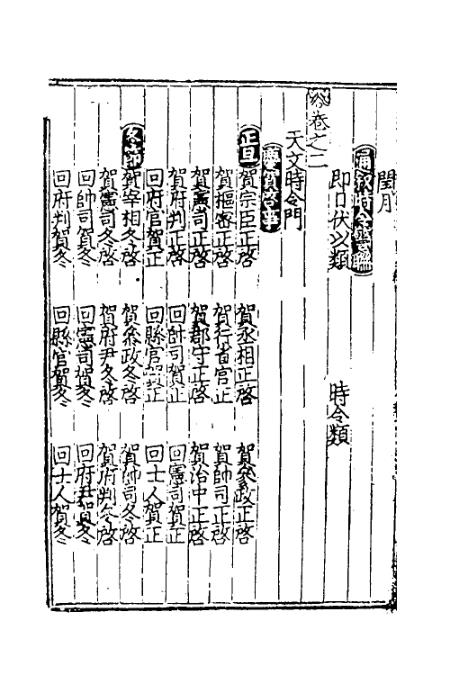 閏月
通敘時令
即日伏以類 時令類
卷之二
天文時令門
慶賀啓事
正旦 賀宗臣正啓 賀丞相正啓 賀參政正啓
賀樞密正啓 賀行省官正 賀帥司正啓
賀憲司正啓 賀郡守正啓 賀治中正啓
賀府判正啓 回帥司賀正 回憲司賀正
回府官賀正 回縣官賀正 回士人賀正
冬節 賀宰相冬啓 賀參政冬啓 賀帥司冬啓
賀憲司冬啓 賀府尹冬啓 賀府判冬啓
回帥司賀冬 回憲司賀冬 回府尹賀冬
回府判賀冬 回縣官賀冬 回士人賀冬